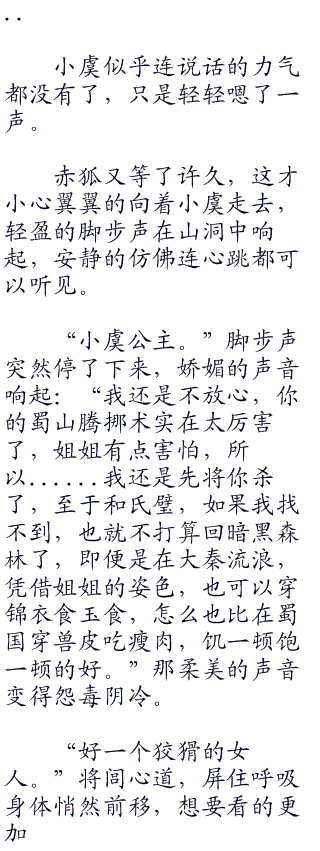 ..
小虞似乎连说话的力气
都没有了，只是轻轻嗯了一
声。
赤狐又等了许久，这才
小心翼翼的向着小虞走去，
轻盈的脚步声在山洞中响
起，安静的仿佛连心跳都可
以听见。
“小虞公主。”脚步声
突然停了下来，娇媚的声音
响起：“我还是不放心，你
的蜀山腾挪术实在太厉害
了，姐姐有点害怕，所
以......我还是先将你杀
了，至于和氏璧，如果我找
不到，也就不打算回暗黑森
林了，即便是在大秦流浪，
凭借姐姐的姿色，也可以穿
锦衣食玉食，怎么也比在蜀
国穿兽皮吃瘦肉，饥一顿饱
一顿的好。”那柔美的声音
变得怨毒阴冷。
“好一个狡猾的女
人。”将闾心道，屏住呼吸
身体悄然前移，想要看的更
加